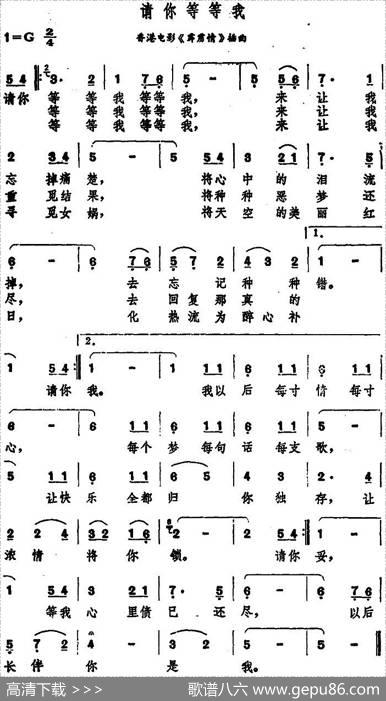 请你等等我
1=G 2/4 香港电影《霹雳情》插曲
请你 等 等 我 等等 我， 来 让 我
等 等 我 等等 我， 来 让 我
等 等 我 等等 我， 来 让 我
忘 掉痛 楚， 将心 中 的 泪 流
重 觅结 果， 将种 种 恶 梦 还
寻 觅女 娲， 将天 空 的美 丽 红
1.
掉， 去 忘 记 种 种 错。
尽， 去 回 复 那 真 的
日， 化 热 流 为 醉 心 补
2.
请你 我。 我以 后 每寸 情 每寸
心， 每个 梦 每句 话 每支 歌，
让快 乐 全都 归 你 独 存， 让
浓 情 将 你 锁。 请你 妥，
等我 心 里债 已 还 尽， 以后
长 伴 你 是 我。
高清下载 >>> 歌谱八六 www.gepu86.com